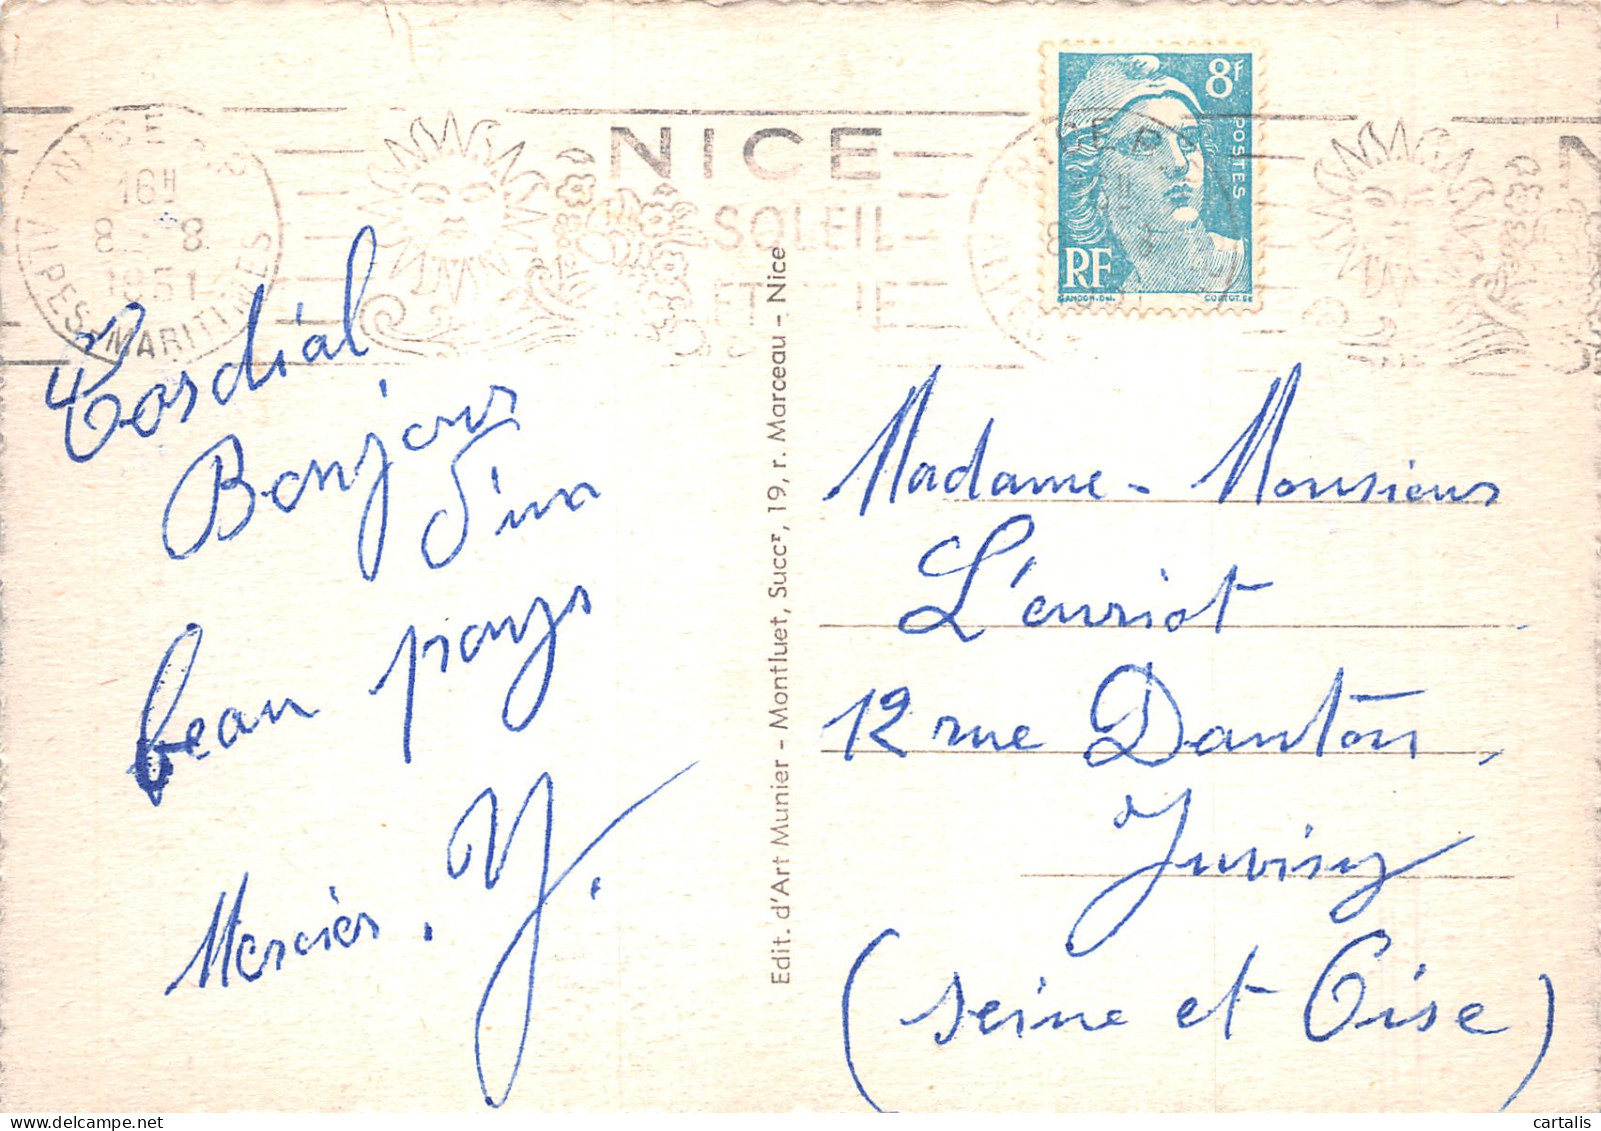 NICE
ALPES MARITIMES
16H
8 - 8
1951
NICE
SOLEIL
ET
8f
POSTES
RF
GANDON.Del.
CORTOT.Sc
Cordial
Bonjour
d'un
beau pays
Mercier. Y.
Edit. d'Art Munier - Montluet, Succr, 19, r. Marceau - Nice
Madame - Monsieur
L'euriot
12 rue Danton
Juvisy
(Seine et Oise)
cartalis